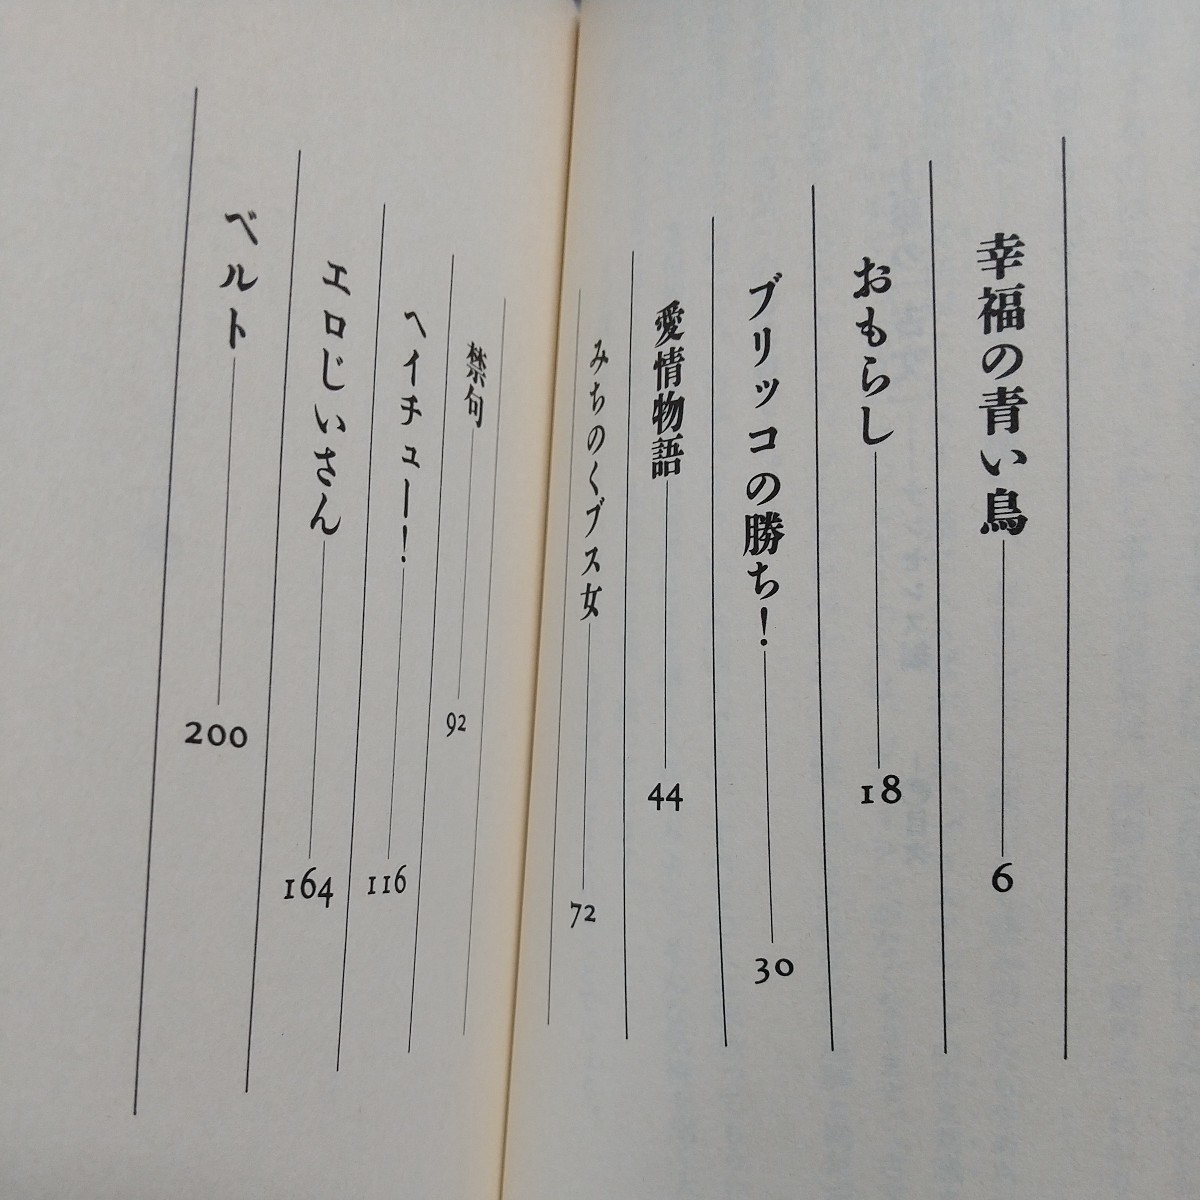 幸福の青い鳥 6
おもらし 18
ブリッコの勝ち! 30
愛情物語 44
みちのくブス女 72
禁句 92
ヘイチュー! 116
エロじいさん 164
ベルト 200